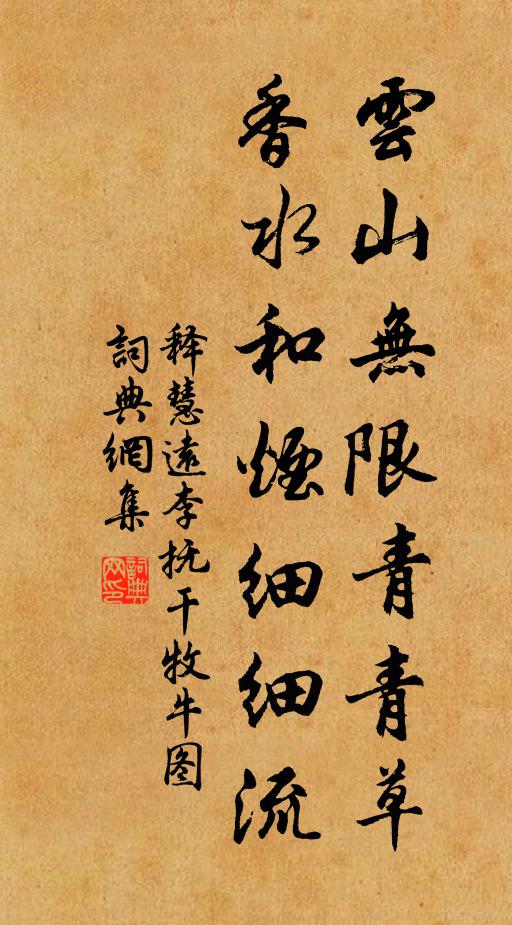 雲山無限青青草
香水和煙細細流
释慧遠李抚干牧牛图
詞典網集
詞典
网印